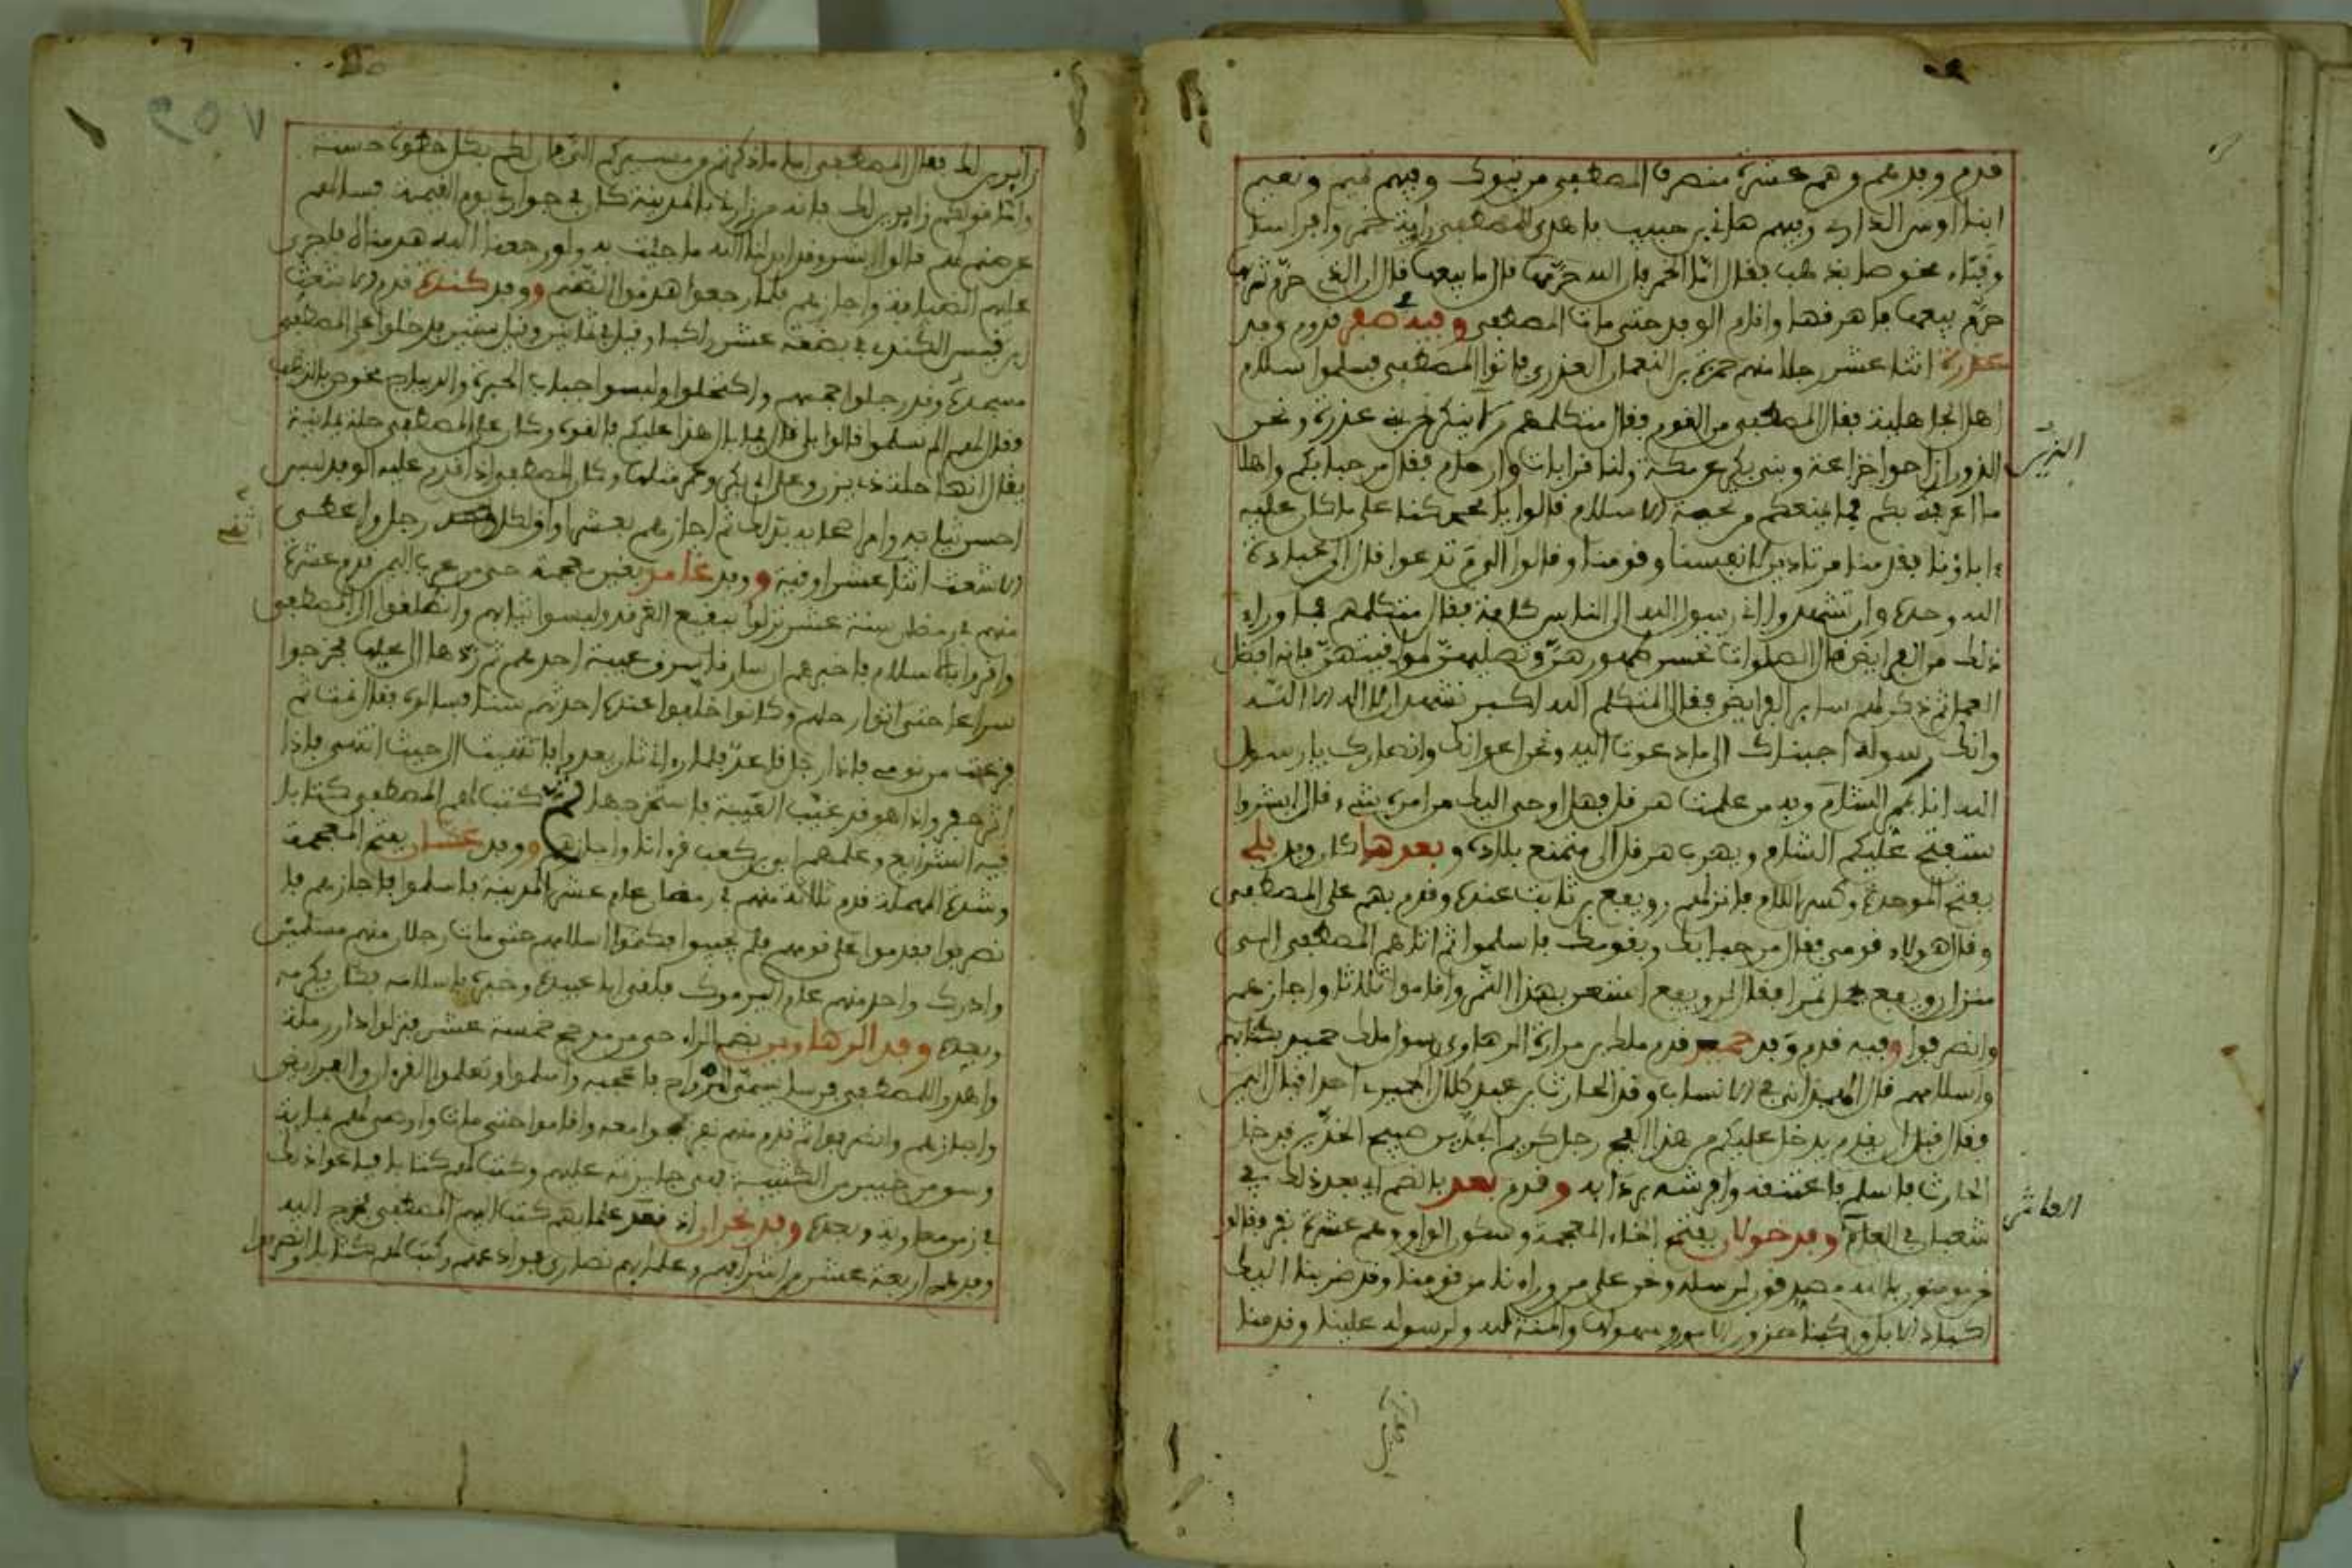 قدم وفدهم وهم عشرة منصرف المصطفى من تبوك وفيهم تميم ونعيم
ابنا اوس الداري وفيهم هانئ بن حبيب فاهدى للمصطفى راوية خمر وافراسا
وقباء مخوصا بذهب فقال اما الخمر فان الله حرمها قال ابيعها قال ان الذي حرم شربها
حرم بيعها فاهرقها واقام الوفد حتى مات المصطفى وفيه صفر قدوم وفد
عذرة اثنا عشر رجلا منهم حمزة بن النعمان العذري فاتوا المصطفى فسلموا سلام
اهل الجاهلية فقال المصطفى من القوم فقال متكلمهم من لا ينكر نحن بنو عذرة ونحن
الذين
الذين ازاحوا خزاعة وبني بكر عن مكة ولنا قرابات وارحام فقال مرحبا بكم واهلا
ما اعرفني بكم فما منعكم من تحية الاسلام قالوا يا محمد كنا على ما كان عليه
ءاباؤنا فقدمنا مرتادين لانفسنا وقومنا وقالوا الى م تدعوا قال الى عبادة
الله وحده وان تشهدوا اني رسول الله الى الناس كافة فقال متكلمهم فما وراء
ذلك من الفرايض قال الصلوات خمس طهورهن وتصليهن لمواقيتهن فانه افضل
العمل ثم ذكر لهم ساير الفرايض فقال المتكلم الله اكبر نشهد ان لا اله الا الله
وانك رسوله اجبناك الى ما دعوت اليه ونحن اعوانك وانصارك يا رسول
الله انا بمتجر الشام وبه من علمت هرقل فهل اوحي اليك من امره بشيء قال ابشروا
ستفتح عليكم الشام ويهرب هرقل الى ممتنع بلاده وبعدها كان وفد بلي
بفتح الموحدة وكسر اللام فانزلهم رويفع بن ثابت عنده وقدم بهم على المصطفى
وقال هولاء قومي فقال مرحبا بك وبقومك فاسلموا ثم اتاهم المصطفى الى
منزل رويفع يحمل تمرا فقال لرويفع استعن بهذا التمر واقاموا ثلاثا واجازهم
وانصرفوا وفيه قدم وفد حمير قدم ملك بن مرارة الرهاوي رسول ملك حمير بكتابهم
واسلامهم قال الهمداني في الانساب وفد الحارث بن عبد كلال الحميري احد اقيال اليمن
فقال قبل ان يقدم يدخل عليكم من هذا الفج رجل كريم الجدين صبيح الخدين فدخل
الحارث فاسلم فاعتنقه وافرشه رداءه وقدم بعد بالضم اي بعد ذلك في
شعبان في العام وفد خولان بفتح الخاء المعجمة وسكون الواو وهم عشرة نفر وقالوا
العاشر
نحن مومنون بالله مصدقون لرسله ونحن على من وراءنا من قومنا وقد ضربنا اليك
اكباد الابل وركبنا حزون الارض وسهولها والمنة لله ولرسوله علينا وقدمنا
زايرين
زايرين لك فقال المصطفى اما ما ذكرتم من مسيركم الي فان لكم بكل خطوة حسنة
واما قولكم زايرين لك فانه من زارني بالمدينة كان في جواري يوم القيمة فسالهم
عن صنم لهم قالوا ابشر وقد ابدلنا الله ما جئت به ولو رجعنا اليه هدمناه فاجرى
عليهم الضيافة واجازهم فلما رجعوا هدموا الصنم ووفد كندة قدم الاشعث
بن قيس الكندي في بضعة عشر راكبا وقيل في ثمانين وقيل ستين فدخلوا على المصطفى
مسجده وقد رجلوا جممهم واكتحلوا ولبسوا جباب الحبرة والديباج مخوص بالذهب
فقال لهم الم تسلموا قالوا بلى قال فما بال هذا عليكم فالقوه وكان على المصطفى حلة يمانية
يقال انها حلة ذي يزن وعلى ابي بكر وعمر مثلها وكان المصطفى اذا قدم عليه الوفد لبس
احسن ثيابه وامر اصحابه بذلك ثم اجازهم بعشر اواق لكل رجل واعطى
الاشعث اثنا عشر اوقية ووفد غامد بغين معجمة حي من عرب اليمن قدم عشرة
منهم في رمضان سنة عشر نزلوا ببقيع الغرقد ولبسوا ثيابهم وانطلقوا الى المصطفى
واقروا بالاسلام فاخبرهم ان سارقا سرق عيبة احدهم ثم ردها اليها فخرجوا
سراعا حتى اتوا رحلهم وكانوا خلفوا عنده احدثهم سنا فسالوه فقال نمت ثم
فزعت من نومي فاذا رجل قاعد فلما رءاني ثار يعدوا فانتهيت الى حيث انتهى فاذا
اثر حفر واذا هو قد غيب العيبة فاستخرجها ثم كتب لهم المصطفى كتابا
فيه الشرايع وعلمهم ابي بن كعب قرءانا واجازهم ووفد غسان بفتح المعجمة
وشد المهملة قدم ثلاثة منهم في رمضان عام عشر المدينة فاسلموا فاجازهم فا
نصرفوا فقدموا على قومهم فلم يجيبوا فكتموا اسلامهم حتى مات رجلان منهم مسلمين
وادرك واحد منهم عام اليرموك فلقي ابا عبيدة وخبره باسلامه فكان يكرمه
وبعده وفد الرهاويين بضم الراء حي من مذحج خمسة عشر فنزلوا دار رملة
واهدوا للمصطفى فرسا يسمى المرواح فاعجبه واسلموا وتعلموا القرءان والفرايض
واجازهم وانصرفوا ثم قدم منهم نفر حجوا معه واقاموا حتى مات واوصى لهم بماية
وسق من خيبر من الكتيبة فهي جارية عليهم وكتب لهم كتابا فباعوا ذلك
في زمن معاوية وبعده وفد نجران اذ كتب اليهم المصطفى فخرج اليه
وفدهم اربعة عشر من اشرافهم وعلماءهم نصارى فوادعهم وكتب لهم كتابا وانصرفوا